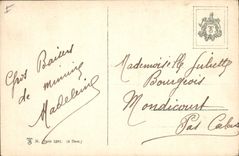 Gros Baisers
de mimine
Madeleine
Mademoiselle Juliette
Bourgeois
Mondicourt
Pas Calais